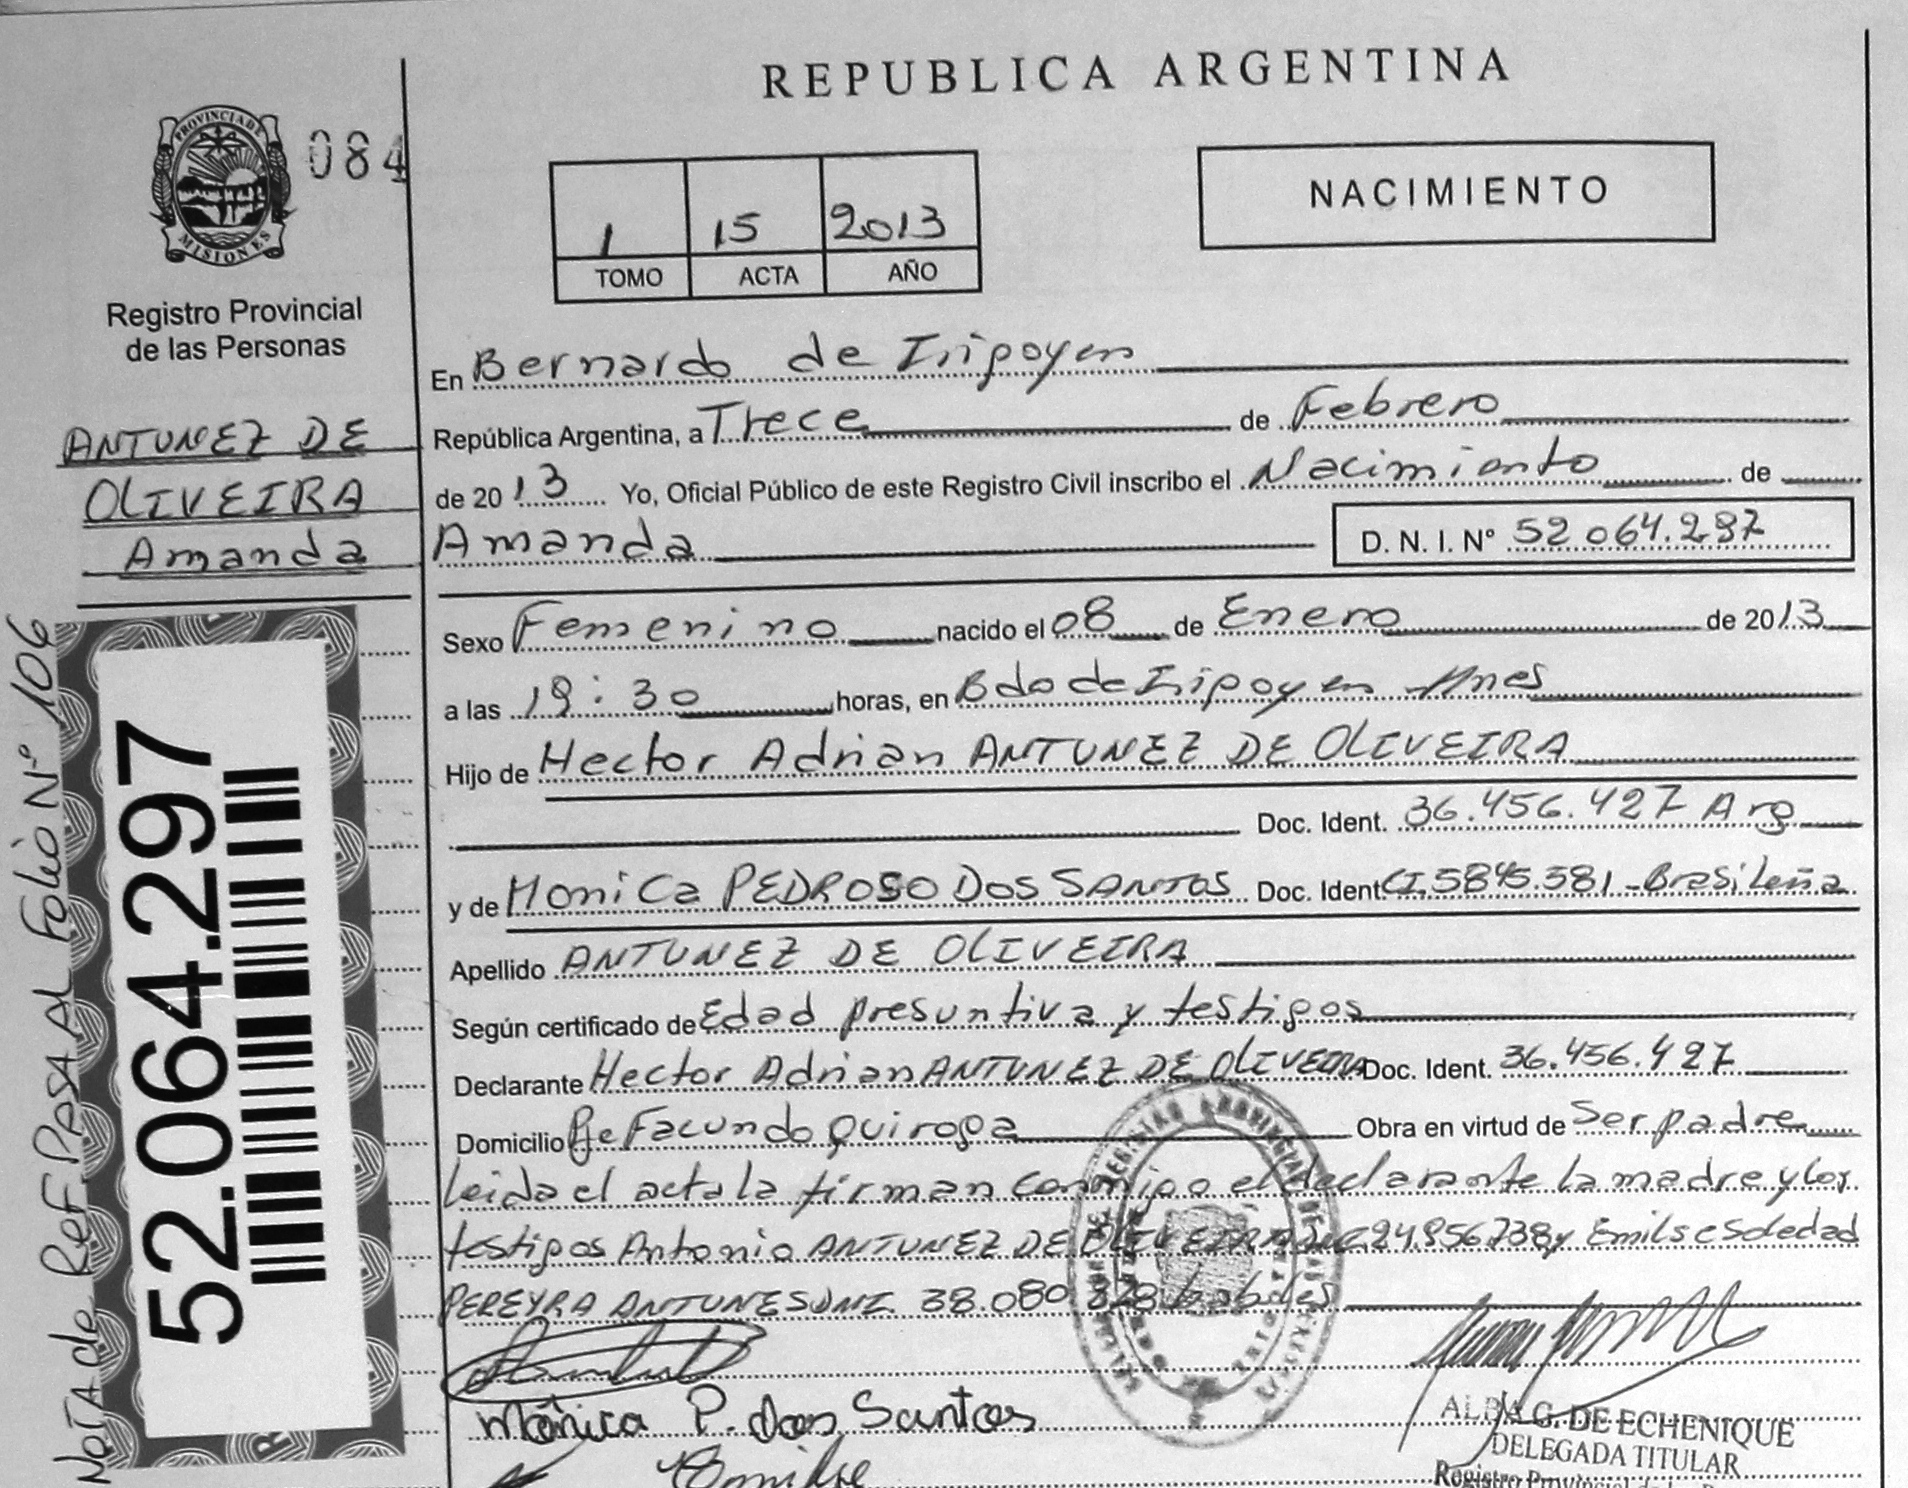 REPUBLICA ARGENTINA
PROVINCIA DE
MISIONES
084
Registro Provincial
de las Personas
1 15 2013
TOMO ACTA AÑO
NACIMIENTO
ANTUNEZ DE
OLIVEIRA
Amanda
Nota de Ref. Pasa Al Folio Nº 106
52.064.297
En Bernardo de Irigoyen
República Argentina, a Trece de Febrero
de 2013 Yo, Oficial Público de este Registro Civil inscribo el Nacimiento de
Amanda D. N. I. Nº 52.064.297
Sexo Femenino nacido el 08 de Enero de 2013
a las 19:30 horas, en Bdo de Irigoyen Mnes
Hijo de Hector Adrian ANTUNEZ DE OLIVEIRA
Doc. Ident. 36.456.427 Arg
y de Monica PEDROSO DOS SANTOS Doc. Ident. CI.5845.581-Brasileña
Apellido ANTUNEZ DE OLIVEIRA
Según certificado de Edad presuntiva y testigos
Declarante Hector Adrian ANTUNEZ DE OLIVEIRA Doc. Ident. 36.456.427
Domicilio Pje Facundo Quiroga Obra en virtud de Ser padre
leida el acta la firman conmigo el declarante la madre y los
testigos Antonio ANTUNEZ DE OLIVEIRA 24.956.738 y Emilse Soledad
PEREYRA ANTUNES DNI. 38.080.828 habiles
Mónica P. dos Santos
Emilse
ALBA G. DE ECHENIQUE
DELEGADA TITULAR
Registro Provincial de las